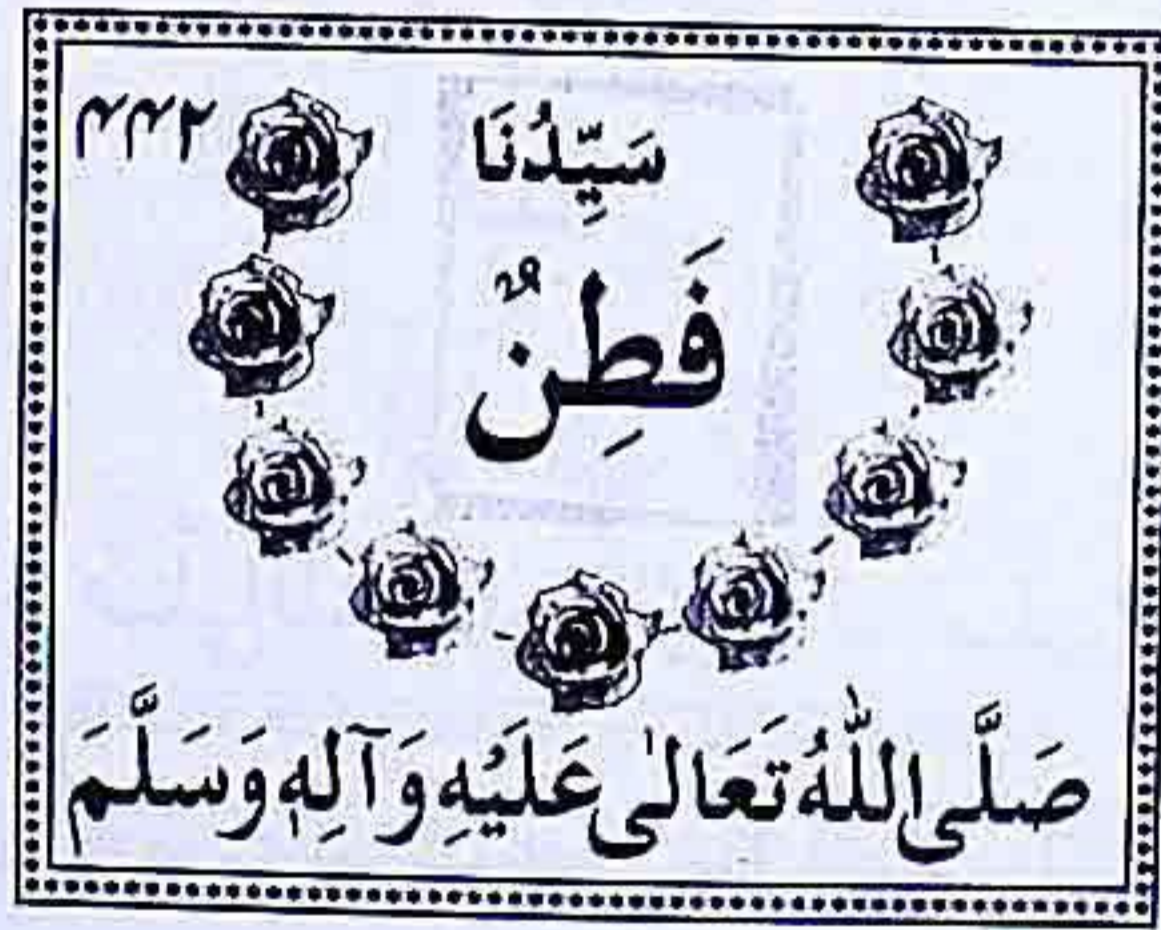 ۴۴۲
سَيِّدُنَا
فَطِنٌ
صَلَّى اللّٰهُ تَعَالٰى عَلَيْهِ وَآلِهٖ وَسَلَّمَ